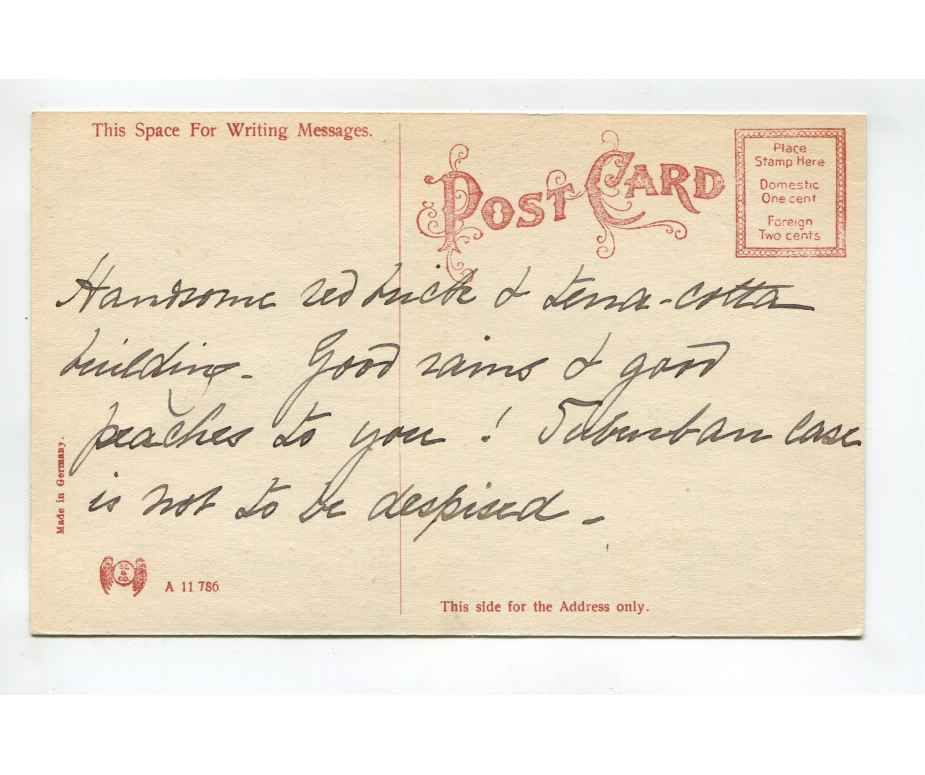 This Space For Writing Messages.
POST CARD
Place
Stamp Here
Domestic
One cent
Foreign
Two cents
Handsome red brick & terra-cotta
building. Good rains & good
peaches to you! Suburban case
is not to be despised -
Made in Germany.
A 11 786
This side for the Address only.